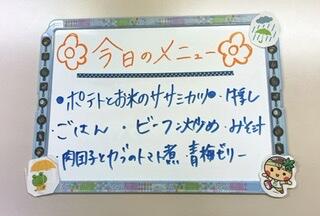 今日のメニュー
・ポテトとお米のササミカツ・
・ごはん・ビーフン炒め・みそ汁
・肉団子とカブのトマト煮・青梅ゼリー